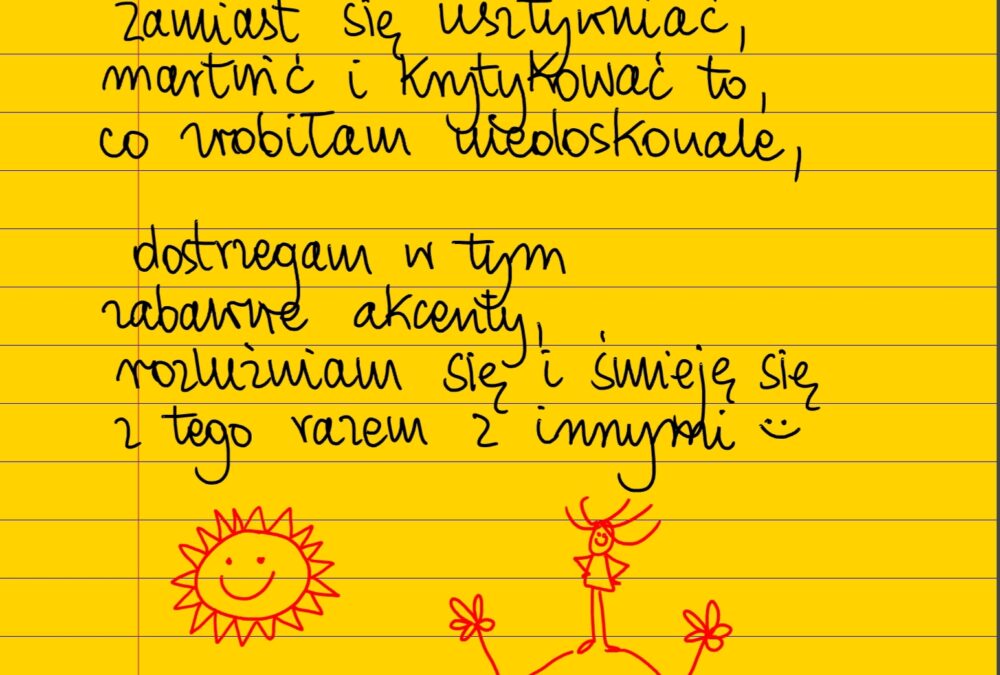 zamiast się usztywniać,
martwić i krytykować to,
co zrobiłam niedoskonale,
dostrzegam w tym
zabawne akcenty,
rozluźniam się i śmieję się
z tego razem z innymi :)